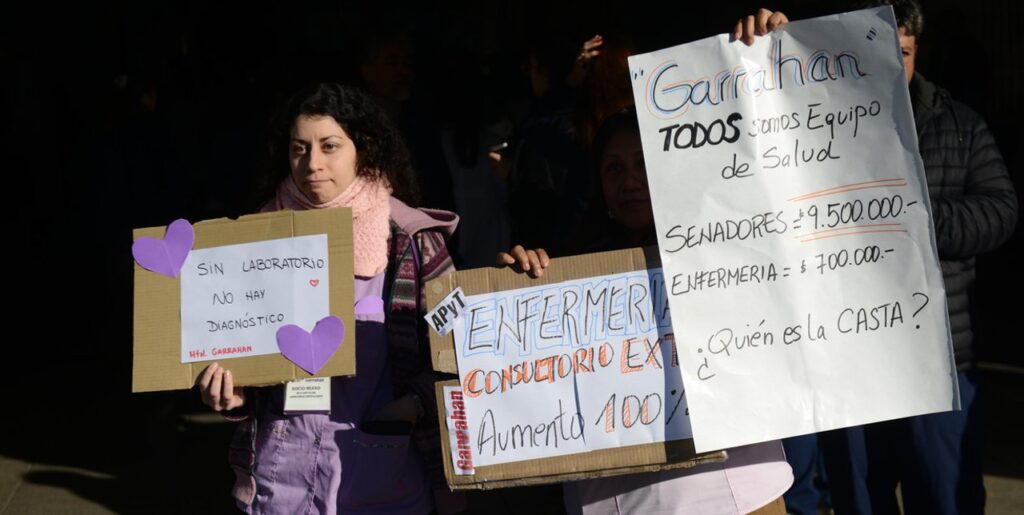 SIN LABORATORIO
NO HAY
DIAGNÓSTICO
Htal. GARRAHAN
APyT
ENFERMERIA
CONSULTORIO EXT
Aumento 100%
Garrahan
"Garrahan"
TODOS somos Equipo
de Salud
SENADORES = $ 9.500.000.-
ENFERMERIA = $ 700.000.-
¿Quién es la CASTA?